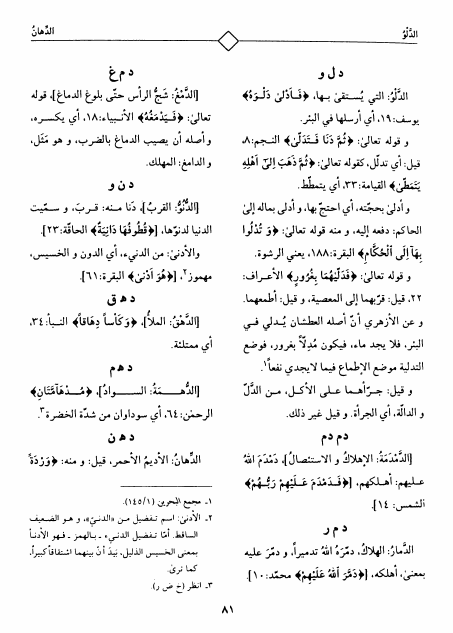 الدَّلْوُ
الدِّهانُ
د ل و
الدَّلْوُ: التي يُستقىٰ بـها، ﴿فَـأَدْلَىٰ دَلْـوَهُ﴾
يوسف: ١٩، أي أرسلها في البئر.
و قوله تعالىٰ: ﴿ثُمَّ دَنَا فَتَدَلَّىٰ﴾ النجم: ٨،
قيل: أي تدلّل، كقوله تعالىٰ: ﴿ثُمَّ ذَهَبَ إِلَىٰ أَهْلِهِ
يَتَمَطَّىٰ﴾ القيامة: ٣٣، أي يتمطّط.
و أدلىٰ بحجّته، أي احتجّ بها، و أدلى بماله إلى
الحاكم: دفعه إليه، و منه قوله تعالىٰ: ﴿وَ تُدْلُوا
بِهَا إِلَى ٱلْحُكَّامِ﴾ البقرة: ١٨٨، يعني الرشوة.
و قوله تعالىٰ: ﴿فَدَلَّيٰهُمَا بِغُرُورٍ﴾ الأعراف:
٢٢، قيل: قرّبهما إلى المعصية، و قيل: أطمعهما.
و عن الأزهري أنّ أصله العطشان يُدلي في
البئر، فلا يجد ماء، فيكون مُدِلّاً بغرور، فوضع
التدلية موضع الإطماع فيما لايجدي نفعاً١.
و قيل: جرّأهما على الأكل، مـن الدَّلّ
و الدالّة، أي الجرأة. و قيل غير ذلك.
د م د م
[الدَّمْدَمَةُ: الإهلاكُ و الاستئصالُ]، دَمْدَمَ اللهُ
عليهم: أهلكهم، [﴿فَدَمْدَمَ عَلَيْهِمْ رَبُّـهُمْ﴾
الشمس: ١٤].
د م ر
الدَّمارُ: الهلاكُ، دمّرَهُ اللهُ تدميراً، و دمّرَ عليه
بمعنىٰ، أهلكه، [﴿دَمَّرَ ٱللهُ عَلَيْهِمْ﴾ محمّد: ١٠].
د م غ
[الدَّمْغُ: شَجُّ الرأس حتّى بلوغ الدماغ]، قوله
تعالىٰ: ﴿فَـيَدْمَغُهُ﴾ الأنبياء: ١٨، أي يكسره،
و أصله أن يصيب الدماغ بالضرب، و هو مَثَل،
و الدامغ: المهلك.
د ن و
[الدُّنُوُّ: القربُ]، دَنَا مـنه: قـربَ، و سمّيت
الدنيا لدنوّها، [﴿قُطُوفُهَا دَانِيَةٌ﴾ الحاقّة: ٢٣].
و الأدنىٰ: من الدنيء، أي الدون و الخسيس،
مهموز٢، [﴿هُوَ أَدْنىٰ﴾ البقرة: ٦١].
د هـ ق
[الدَّهْقُ: الملأُ]، ﴿وَكَأْساً دِهَاقاً﴾ النبأ: ٣٤،
أي ممتلئة.
د هـ م
[الدُّهـمَةُ: الســـوادُ]، ﴿مُـدْهَآمَّتَانِ﴾
الرحمٰن: ٦٤، أي سوداوان من شدّة الخضرة٣.
د هـ ن
الدِّهانُ: الأديمُ الأحمر، قيل: و منه: ﴿وَرْدَةً
١ـ مجمع البحرين (١٤٥/١).
٢ـ الأدنىٰ: اسم تفضيل من «الدنيّ»، و هو الضعيف
الساقط. أمّا تفضيل الدنيء ـ بالهمز ـ فهو الأدنأ
بمعنى الخسيس الذليل، بَيْدَ أنّ بينهما اشتقاقاً كبيراً،
كما ترىٰ.
٣ـ انظر (خ ض ر).
٨١